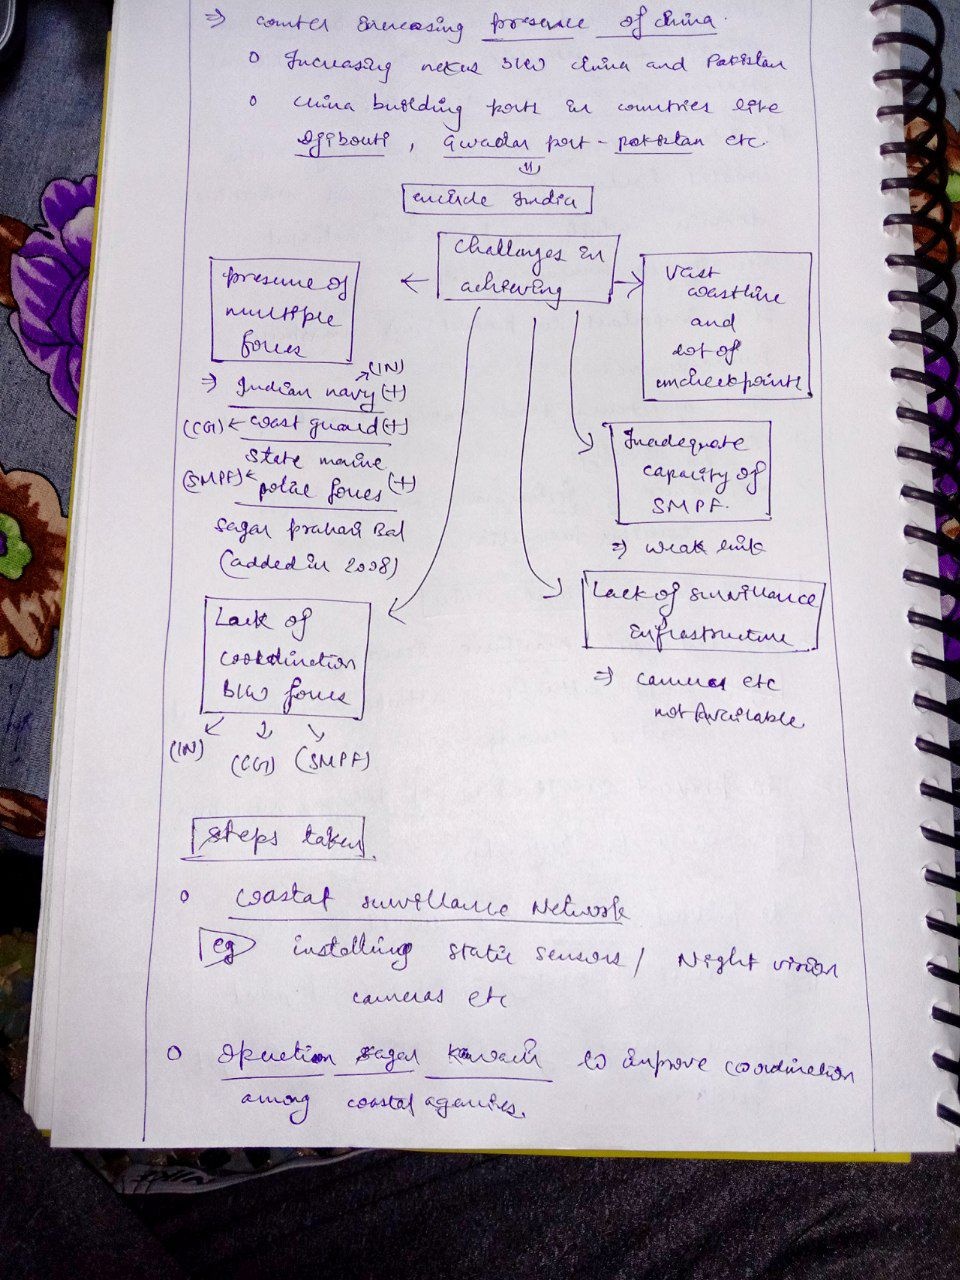 ⇒ counter increasing presence of china.
o Increasing nexus B/W china and Pakistan
o China building ports in countries like
Djibouti, Gwadar port - pakistan etc.
encircle India
Challenges in
achieving
presence of
multiple
forces
⇒ Indian navy (+)
(IN)
(CG) ← coast guard (+)
state marine
(SMPF) ← police forces (+)
Sagar prahari Bal
(added in 2008)
Vast
coastline
and
lot of
uncheckpoints
Inadequate
capacity of
SMPF.
⇒ weak link
Lack of survillance
Infrastructure
⇒ cameras etc
not Available
Lack of
coordination
B/W forces
(IN) (CG) (SMPF)
steps taken
o Coastal survillance Network
eg installing static sensors / Night vision
cameras etc
o Operation sagar kawach to improve coordination
among coastal agencies.